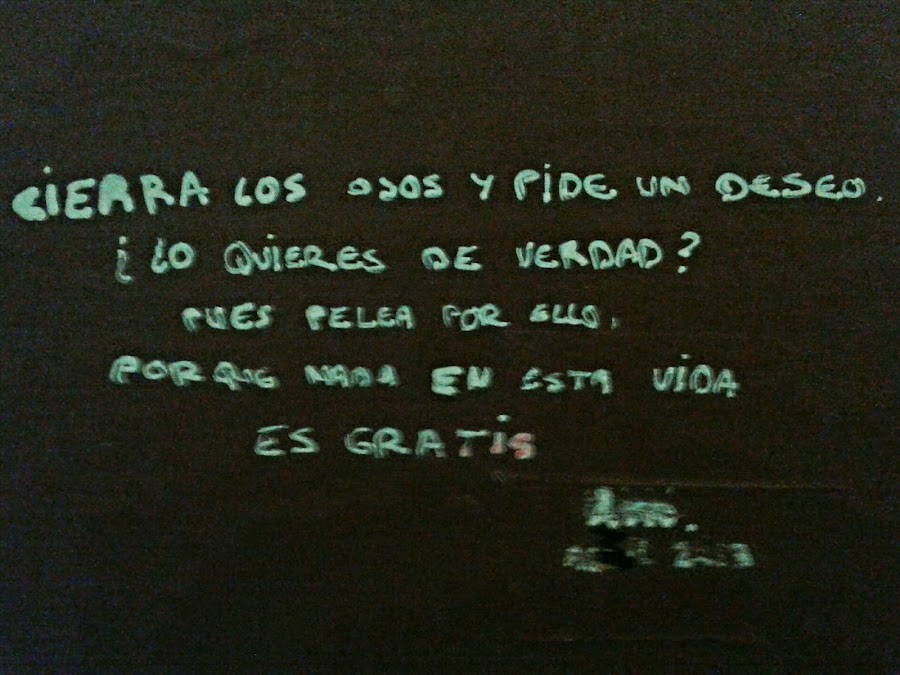 CiERRA LOS OJOS Y PiDE UN DESEO.
¿LO QUIERES DE VERDAD?
PUES PELEA POR ELLO.
PORQUE NADA EN ESTA ViDA
ES GRATiS